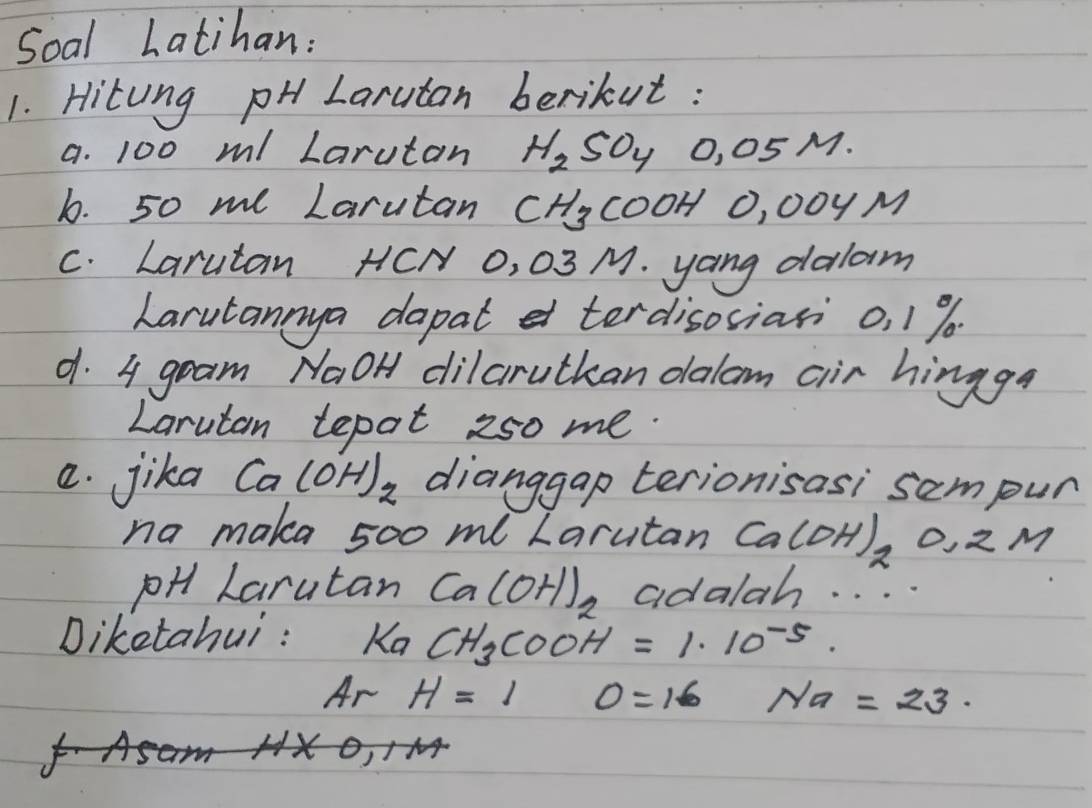 Soal Latihan:
1. Hitung pH Larutan berikut :
a. 100 ml Larutan H₂SO₄ 0,05 M.
b. 50 ml Larutan CH₃COOH 0,004 M
c. Larutan HCN 0,03 M. yang dalam
Larutannya dapat terdisosiasi 0,1 %.
d. 4 gram NaOH dilarutkan dalam air hingga
Larutan tepat 250 ml.
e. jika Ca(OH)₂ dianggap terionisasi sempur
na maka 500 ml Larutan Ca(OH)₂ 0,2 M
pH Larutan Ca(OH)₂ adalah ....
Diketahui : Ka CH₃COOH = 1. 10⁻⁵.
Ar H = 1 O = 16 Na = 23.
f. Asam HX 0,1 M